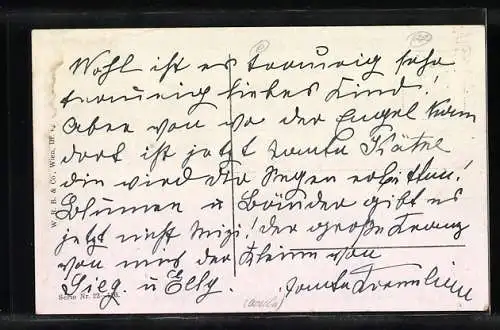 Wohl ist es traurig sehr
traurig liebes Kind!
Aber von wo der Engel kam
dort ist jetzt Tante Käthe
die wird dir Segen erbitten!
Blumen u Bänder gibt es
jetzt nicht Mizi! der große Kranz
von uns der kleine von
Sieg. u Elly.
Tante
W. R. B. & Co., Wien, III.
Serie Nr. 22